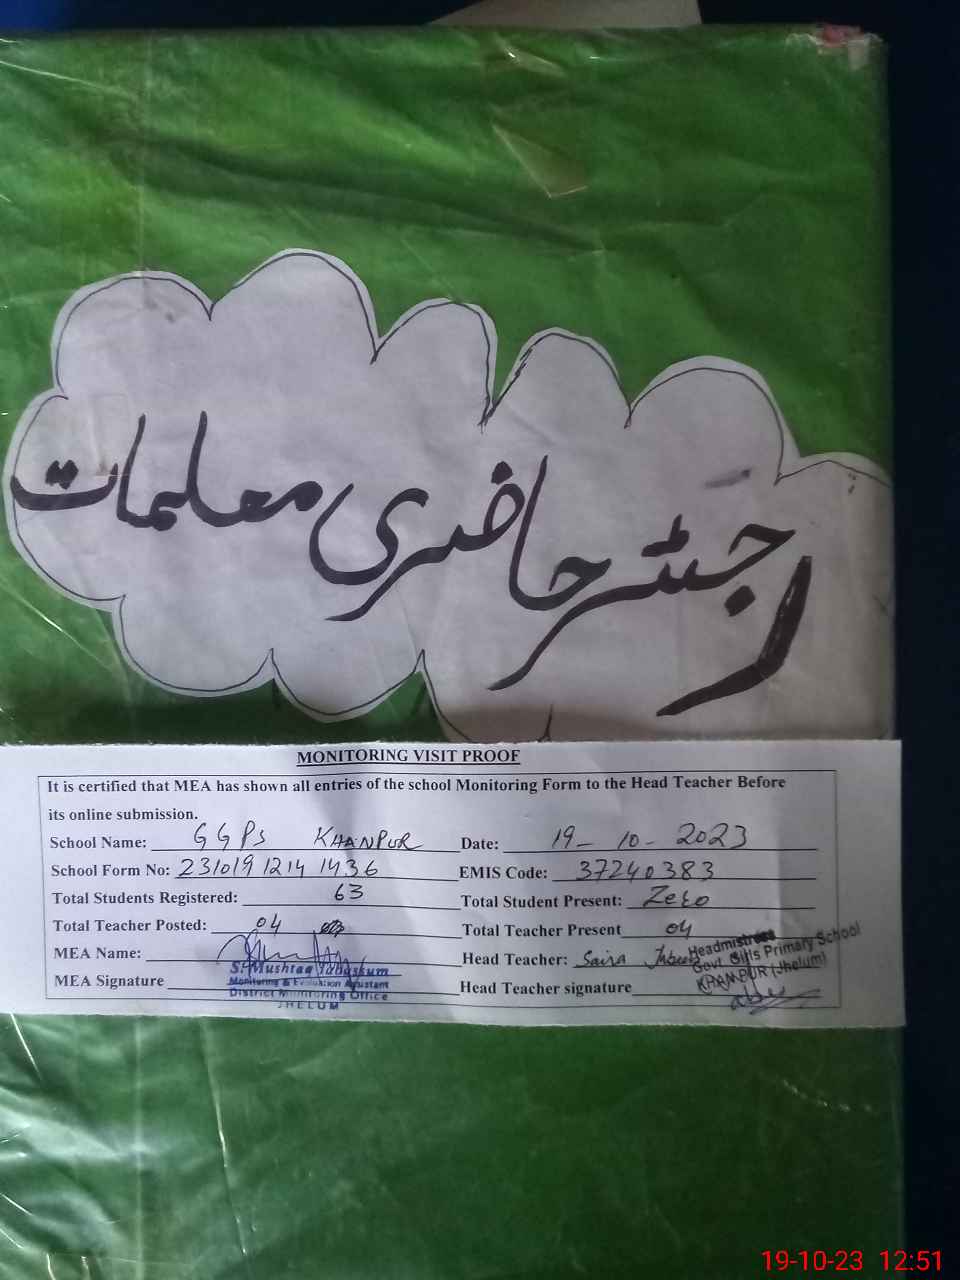 رجسٹر حاضری معلمات
MONITORING VISIT PROOF
It is certified that MEA has shown all entries of the school Monitoring Form to the Head Teacher Before
its online submission.
School Name: GGPS KHANPUR Date: 19-10-2023
School Form No: 23101912141436 EMIS Code: 37240383
Total Students Registered: 63 Total Student Present: Zero
Total Teacher Posted: 04 Total Teacher Present 04
MEA Name: Head Teacher: Saira
MEA Signature Head Teacher signature
S. Mushtaq Tabassum
Monitoring & Evaluation Assistant
District Monitoring Office
JHELUM
Headmistress
Govt. Girls Primary School
KHANPUR (Jhelum)
19-10-23 12:51